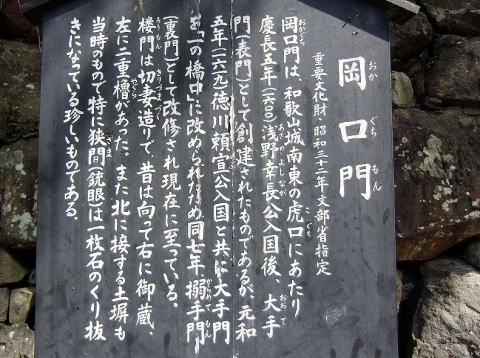 岡口門
おかぐちもん
重要文化財・昭和三十二年文部省指定
岡口門は、和歌山城南東の虎口にあたり
慶長五年(一六〇〇)浅野幸長公入国後、大手
門(表門)として創建されたものであるが、元和
五年(一六一九)徳川頼宣公入国と共に大手門
を「一の橋中」に改められたため同七年、搦手門
(裏門)として改修され現在に至っている。
楼門は切妻造りで、昔は向って右に御蔵、
左に二重櫓があった。また北に接する土塀も
当時のもので、特に狭間(銃眼)は一枚石のくり抜
きになっている珍しいものである。